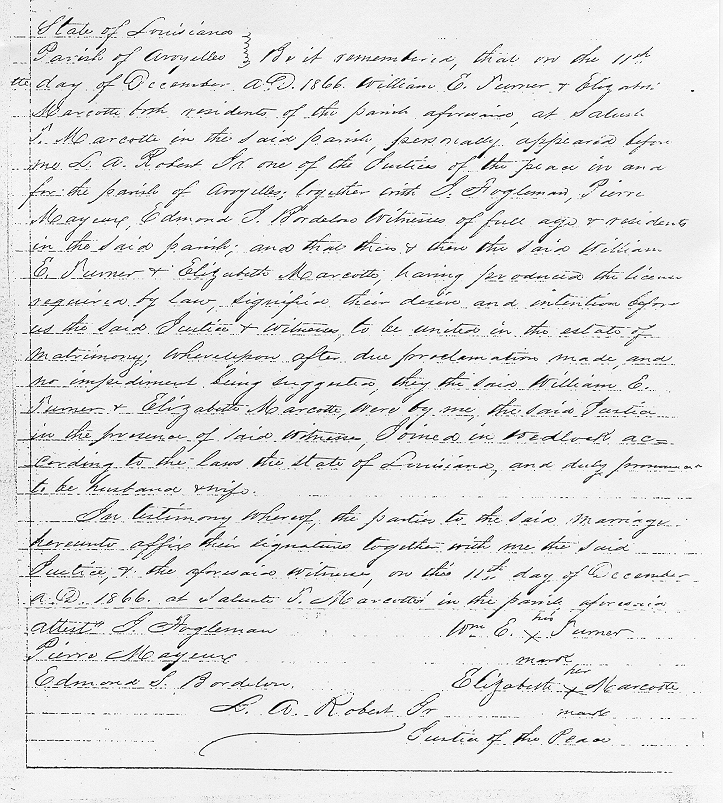 State of Louisiana
Parish of Avoyelles } Be it remembered, that on the 11th
the day of December A.D. 1866. William E. Turner & Elizabeth
Marcotte both residents of the parish aforesaid, at Saluste
T. Marcotte in the said parish, personally appeared before
me L. A. Robert Jr one of the Justices of the peace in and
for the parish of Avoyelles; together with J. Fogleman, Pierre
Mayeux, Edmond S. Bordelon Witnesses of full age & residents
in the said parish; and that then & there the said William
E. Turner & Elizabeth Marcotte, having produced the license
required by law, signified their desire and intention before
us the said Justice & witnesses, to be united in the estate of
matrimony; Whereupon after due proclamation made, and
no impediment being suggested, they the said William E.
Turner & Elizabeth Marcotte, were by me, the said Justice
in the presence of said witnesses, Joined in wedlock ac=
cording to the laws the state of Louisiana, and duly pronounced
to be husband & wife.
In testimony whereof, the parties to the said marriage
hereunto affix their signatures together with me the said
Justice, & the aforesaid witnesses, on this 11th day of December
A.D. 1866. at Saluste T. Marcotte's in the parish aforesaid
attest J. Fogleman
Wm E. his x mark Turner
Pierre Mayeux
Edmond S. Bordelon
Elizabeth her x mark Marcotte
L. A. Robert Jr
Justice of the Peace